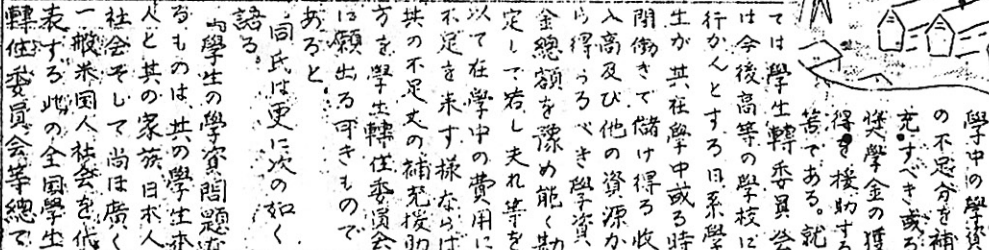 學中の學資
の不足分を補
充すべき或
奬學金の獲
得を援助する
筈である。就
ては學生轉委員会
は今後高等の學校に
行かんとする日系學
生が其在學中或る時
間働きて儲け得る收
入高及び他の資源か
ら得らるべき學資
金總額を豫め能く勘
定して若し夫れ等を
以て在學中の費用に
不足を来す様ならば
其の不足丈の補充援助
方を學生轉住委員会
に願出る可きもので
あると
同氏は更に次の如く
語る。
「學生の學資問題な
るものは、其の學生本
人と其の家族日本人
社会そして尚は廣く
一般米国人社会を代
表する此の全国學生
轉住委員会等總て